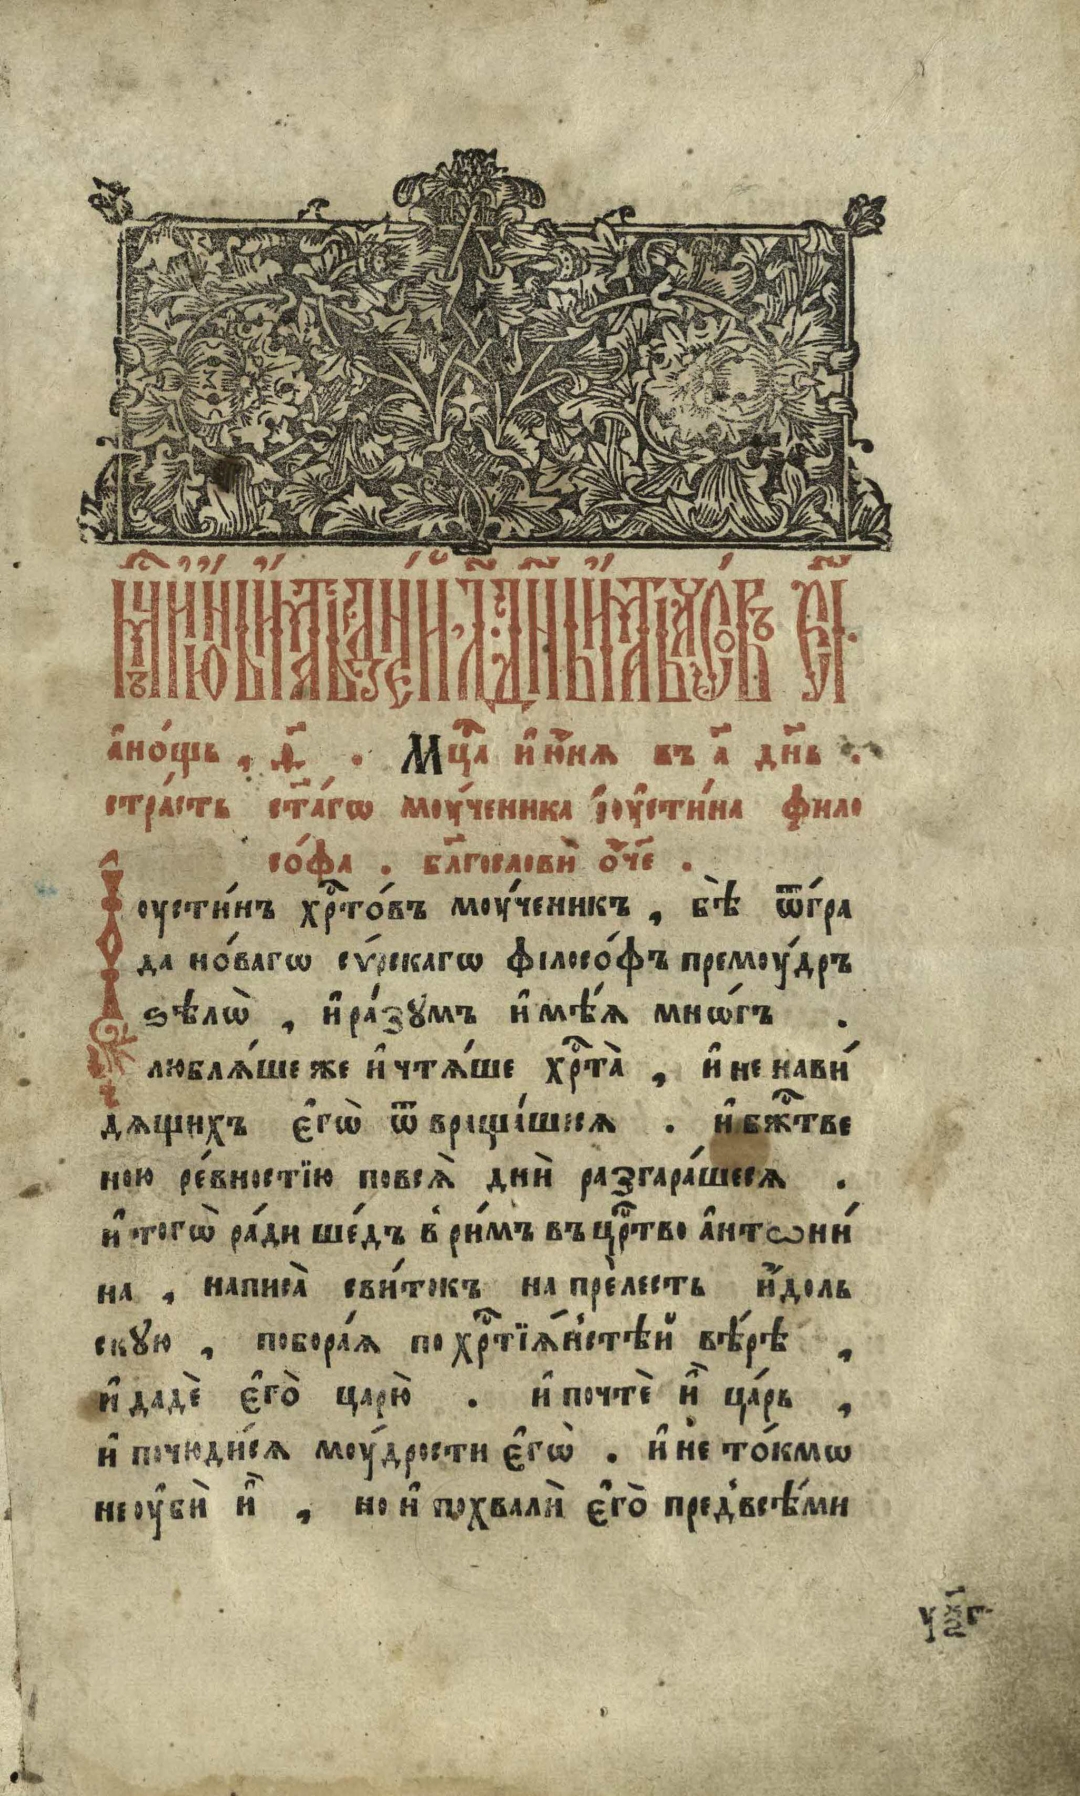 мцⷭ҇ъ і҆ю́нїй, и҆́мать дні́й, л҃. де́нь и҆́мать часо́въ, є҃і.
а҆но́щь, ѳ҃ . Мцⷭ҇а и҆ ю҆́нѧ въ а҃ дн҃ь .
стра́сть ст҃а́гѡ моу́ченика і҆оу҆сти́на фило
со́фа . бл҃гослови̇̀ ѻ҆́ч҃е .
І҆оусти́нъ хрⷭ҇то́въ моу́ченикъ , бѣ̀ ѿгра́
да но́вагѡ сѵ́рскагѡ філосо́фъ премоу́дръ
ѕѣлѡ̀ , и҆ ра́зꙋмъ и҆мѣ́ѧ мно́гъ .
люблѧ́ше же и҆ чтѧ́ше хрⷭ҇та̀ , и҆ не нави́
дѧщихъ є҆гѡ̀ ѿвраща́шесѧ . и҆ бжⷭ҇тве
ною ре́вностїю повсѧ̀ днѝ разгара́шесѧ .
и҆ тогѡ̀ ра́ди ше́дъ в̾ ри́мъ въ црⷭ҇тво а҆нтѡни́
на , написа̀ сви́токъ на пре́лесть и҆́доль
скꙋю , побора́ѧ по хрⷭ҇тїѧ́н̾стѣй вѣ́рѣ ,
и҆ дадѐ є҆го̀ царю̀ . и҆ почтѐ и҆̀ ца́рь ,
и҆ почюди́сѧ моу́дрости є҆гѡ̀ . и҆ не то́кмѡ
не оу҆бѝ и҆̀ , но и҆ похвалѝ є҆го̀ пред̾ всѣ́ми
уѯ҃г